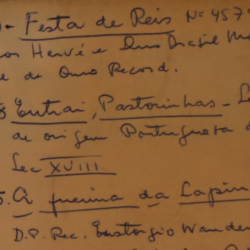 - Festa de Reis Nº 457
os Hervê e Luis Brasil M
e de Ouro Record.
Entrai, Pastorinhas - L
de origem Portuguesa d
Sec XVIII
5. A queima da Lapin
D.P. Rec. Eustórgio Wander